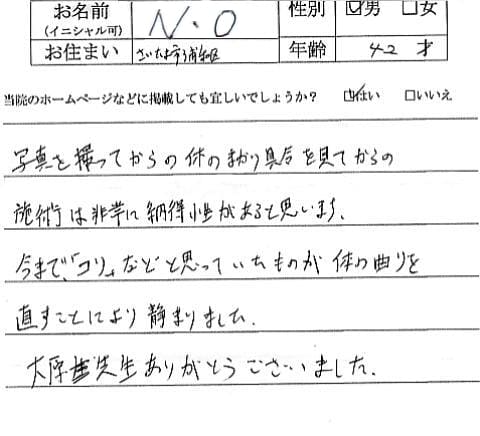 お名前 (イニシャル可) N・O 性別 ☑男 □女
お住まい さいたま市浦和区 年齢 42 才
当院のホームページなどに掲載しても宜しいでしょうか? ☑はい □いいえ
写真を撮ってからの体のまがり具合を見てからの
施術は非常に納得性があると思います。
今まで、「コリ」などと思っていたものが体の曲りを
直すことにより静まりました。
大厚先生ありがとうございました。